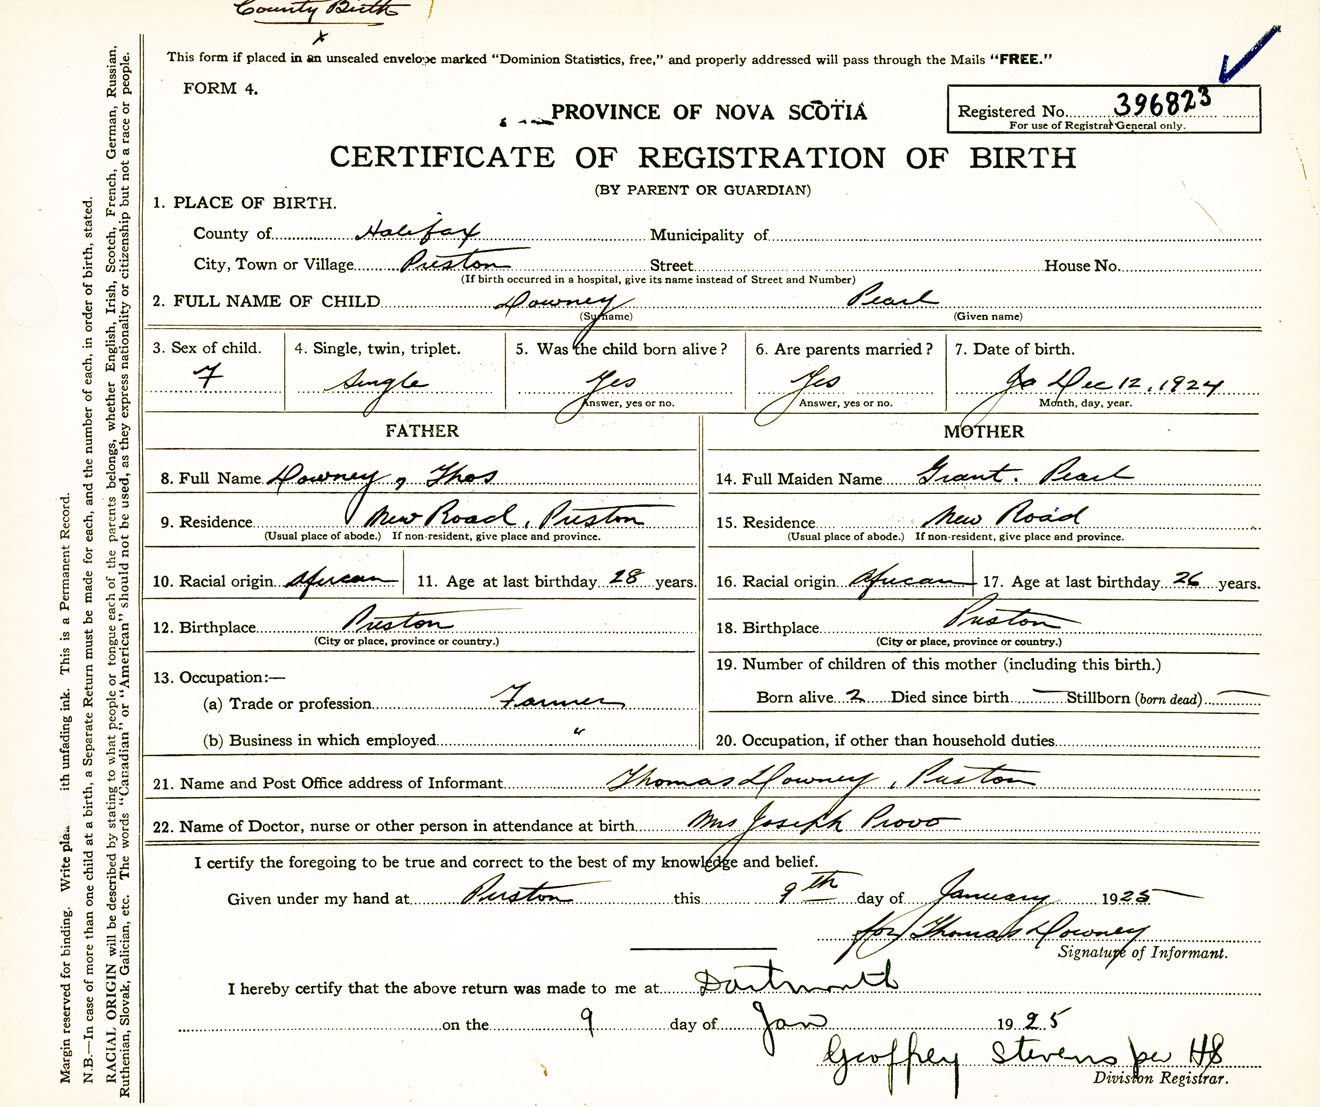 County Birth
x
This form if placed in an unsealed envelope marked "Dominion Statistics, free," and properly addressed will pass through the Mails "FREE."
FORM 4.
PROVINCE OF NOVA SCOTIA
Registered No. 396823
For use of Registrar General only.
CERTIFICATE OF REGISTRATION OF BIRTH
(BY PARENT OR GUARDIAN)
1. PLACE OF BIRTH.
County of Halifax Municipality of
City, Town or Village Preston Street House No.
(If birth occurred in a hospital, give its name instead of Street and Number)
2. FULL NAME OF CHILD Downey Pearl
(Surname) (Given name)
3. Sex of child. 4. Single, twin, triplet. 5. Was the child born alive? 6. Are parents married? 7. Date of birth.
F Single Yes Yes Dec 12, 1924
Answer, yes or no. Answer, yes or no. Month, day, year.
FATHER MOTHER
8. Full Name Downey, Thos 14. Full Maiden Name Grant. Pearl
9. Residence New Road, Preston 15. Residence New Road
(Usual place of abode.) If non-resident, give place and province. (Usual place of abode.) If non-resident, give place and province.
10. Racial origin African 11. Age at last birthday 28 years. 16. Racial origin African 17. Age at last birthday 26 years.
12. Birthplace Preston 18. Birthplace Preston
(City or place, province or country.) (City or place, province or country.)
13. Occupation:— 19. Number of children of this mother (including this birth.)
(a) Trade or profession Farmer Born alive 2 Died since birth — Stillborn (born dead) —
(b) Business in which employed " 20. Occupation, if other than household duties
21. Name and Post Office address of Informant Thomas Downey, Preston
22. Name of Doctor, nurse or other person in attendance at birth Mrs Joseph Provo
I certify the foregoing to be true and correct to the best of my knowledge and belief.
Given under my hand at Preston this 9th day of January 1925
for Thomas Downey
Signature of Informant.
I hereby certify that the above return was made to me at Dartmouth
on the 9 day of Jan 1925
Geoffrey Stevens per HS
Division Registrar.
Margin reserved for binding. Write pla ith unfading ink. This is a Permanent Record.
N.B.—In case of more than one child at a birth, a Separate Return must be made for each, and the number of each, in order of birth, stated.
RACIAL ORIGIN will be described by stating to what people or tongue each of the parents belongs, whether English, Irish, Scotch, French, German, Russian,
Ruthenian, Slovak, Galician, etc. The words "Canadian" or "American" should not be used, as they express nationality or citizenship but not a race or people.